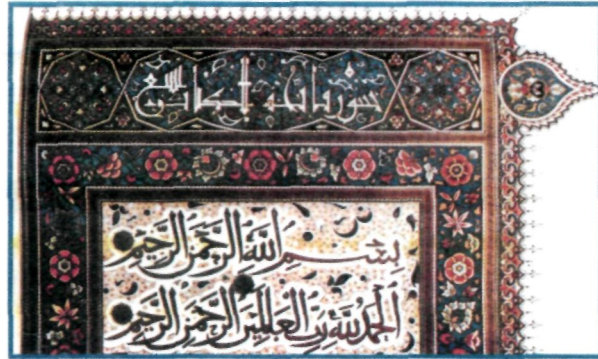 سورة فاتحة الكتاب
بِسْمِ اللَّهِ الرَّحْمَنِ الرَّحِيمِ
الْحَمْدُ لِلَّهِ رَبِّ الْعَٰلَمِينَ الرَّحْمَنِ الرَّحِيمِ